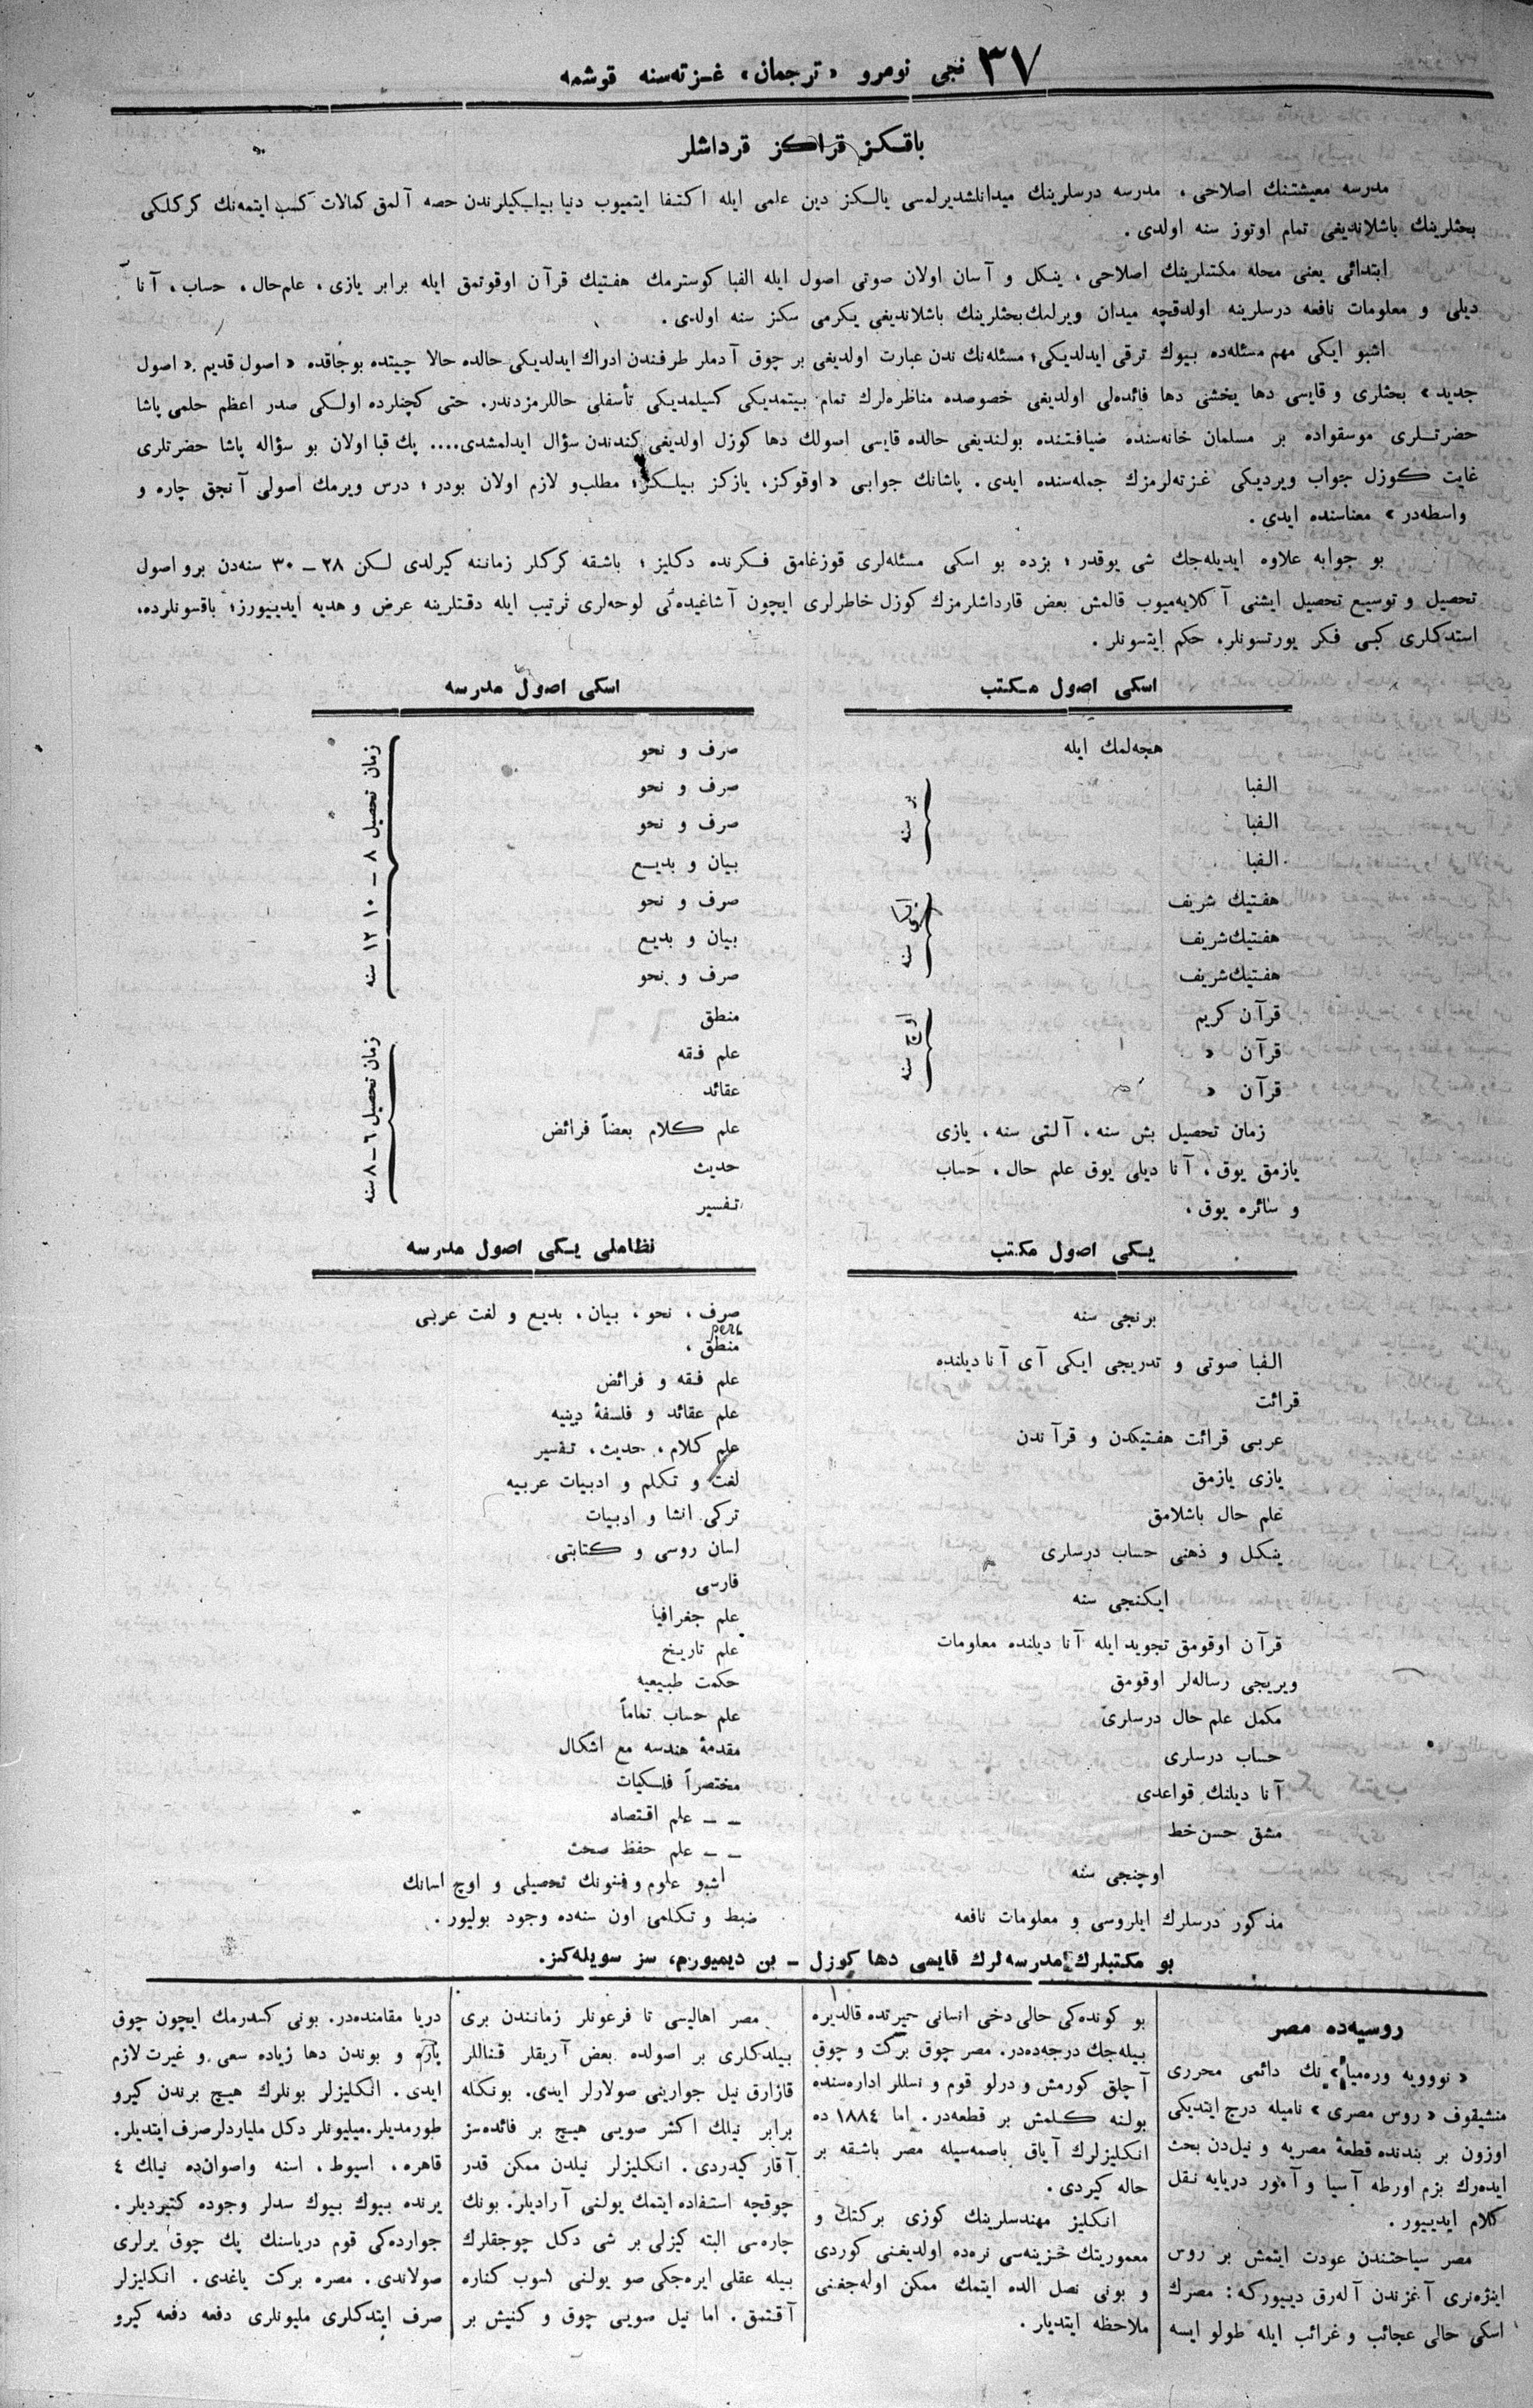 ٣٧ نجی نومرو « ترجمان » غـزته‌سنه قوشمه
باقـكـز قراكز قرداشلر
مدرسه معیشتنك اصلاحی ، مدرسه درسلرینك میدانلشدیرلمسی یالـكز دین علمی ایله اكتـفا ایتمیوب دنیا بیلـیكیلرندن حصه آلمق كمالات كسب ایتمه‌نك كركلـكی
بحثلرینك باشلاندیغی تمام اوتوز سنه اولدی .
ابتدائی یعنی محله مكتبلرینك اصلاحی ، ینـكل و آسان اولان صوتی اصول ایله الفبا كوسترمك هفتیك قرآن اوقوتمق ایله برابر یازی ، علم‌حال ، حساب ، آنا
دیلی و معلومات نافعه درسلرینه اولدقچه میدان ویرلمك بحثلرینك باشلاندیغی یكرمی سكز سنه اولدی .
اشبو ایكی مهم مسئله‌ده بیوك ترقی ایدلدیكی؛ مسئله‌نك ندن عبارت اولدیغی بر چوق آدملر طرفندن ادراك ایدلدیـكی حالده حالا چیتده بوجاقده « اصول قدیم » « اصول
جدید » بحثلری و قایسی دها یخشی دها فائده‌لی اولدیغی خصوصده مناظره‌لرك تمام بیتمدیكی كسیلمدیكی تأسفلی حاللرمزدندر. حتی كچنلرده اولـكی صدر اعظم حلمی پاشا
حضرتـلری موسقواده بر مسلمان خانه‌سنده ضیافتـنده بولندیغی حالده قایسی اصولك دها كوزل اولدیغی كندندن سؤال ایدلمشدی.... پك قبا اولان بو سؤاله پاشا حضرتلری
غایت كوزل جواب ویردیـكی غـزته‌لرمزك جمله‌سنده ایدی . پاشانك جوابی « اوقوكز، یازكز بیلـكز؛ مطلب و لازم اولان بودر؛ درس ویرمك اصولی آنجق چاره و
واسطه‌در » معناسنده ایدی .
بو جوابه علاوه ایدیله‌جك شی یوقدر؛ بزده بو اسكی مسئله‌لری قوزغامق فـكرنده دكلیز؛ باشقه كركلر زماننه كیرلدی لـكن ٢٨ ــ ٣٠ سنه‌دن برو اصول
تحصیل و توسیع تحصیل ایشنی آكلایه‌میوب قالمش بعض قارداشلرمزك كوزل خاطرلری ایچون آشاغیده‌كی لوحه‌لری ترتیب ایله دقتلرینه عرض و هدیه ایدییورز؛ باقسونلرده،
استدكلری كبی فـكر یورتسونلر، حكم ایتسونلر .
اسكی اصول مـكتب
هجه‌لمك ایله
الفبا
الفبا
الفبا
بر سنه
هفتیك شریف
هفتیك شریف
هفتیك شریف
ایكی سنه
قرآن كریم
قرآن «
قرآن «
اوچ سنه
زمان تحصیل بش سنه ، آلتی سنه ، یازی
یازمق یوق ، آنا دیلی یوق علم حال ، حساب
و سائره یوق .
اسكی اصول مدرسه
صرف و نحو
صرف و نحو
صرف و نحو
بیان و بدیـع
صرف و نحو
بیان و بدیع
صرف و نحو
زمان تحصیل ٨ ــ ١٠ ١٢ سنه
منطق
علم فـقه
عقائد
علم كلام بعضاً فرائض
حدیث
تـفسیر
زمان تحصیل ٦ ــ ٨ سنه
یـكی اصول مكتب
برنجی سنه
الـفبا صوتی و تدریجی ایـكی آی آنا دیلنده
قرائت
عربی قرائت هفتیكدن و قرآندن
یازی یازمق
علم حال باشلامق
ینـكل و ذهنی حساب درسلری
ایـكنجی سنه
قرآن اوقومق تجوید ایله آنا دیلنده معلومات
ویریجی رساله‌لر اوقومق
مكمل علم حال درسلری
حساب درسلری
آنا دیلنك قواعدی
مشق حسن خط
اوچنجی سنه
مذكور درسلرك ایلروسی و معلومات نافعه
نظاملی یـكی اصول مدرسه
صرف ، نحو ، بیان ، بدیـع و لغت عربی
منطق ،
علم فـقه و فرائض
علم عقائد و فلسفۀ دینیه
علم كلام ، حدیث ، تـفسیر
لغت و تـكلم و ادبیات عربیه
تركی انشا و ادبیات
لسان روسی و كتابتی
فارسی
علم جغرافیا
علم تاریـخ
حكمت طبیعیه
علم حساب تماماً
مقدمۀ هندسه مع اشكال
مختصراً فلـكیات
ــ ــ علم اقـتصاد
ــ ــ علم حفظ صحت
اشبو علوم و فنونك تحصیلی و اوچ لسانك
ضبط و تـكلمی اون سنه‌ده وجود بولیور .
بو مكتبلرك مدرسه‌لرك قایسی دها كوزل ــ بن دیمیورم، سز سویله‌كز.
روسیه‌ده مصر
« نووویه وره‌میا » نك دائمی محرری
منشیقوف « روس مصری » نامیله درج ایتدیكی
اوزون بر بندنده قطعۀ مصریه و نیل‌دن بحث
ایده‌رك بزم اورطه آسیا و آمور دریایه نـقل
كلام ایدییور .
مصر سیاحتندن عودت ایتمش بر روس
اینژه‌نری آغزندن آله‌رق دییوركه: مصرك
اسكی حالی عجائب و غرائب ایله طولو ایسه
بو كونده‌كی حالی دخی انسانی حیرتده قالدیره
بیله‌جك درجه‌ده‌در. مصر چوق بركت و چوق
آچلق كورمش و درلو قوم و نسللر اداره‌سنده
بولنه كـلمش بر قطعه‌در. اما ١٨٨٤ ده
انكلیزلرك آیاق باصمه‌سیله مصر باشقه بر
حاله كیردی .
انـكلیز مهندسلرینك كوزی بركتك و
معموریتك خـزینه‌سی نره‌ده اولدیغنی كوردی
و بونی نصل الده ایتمك ممكن اوله‌جغنی
ملاحظه ایتدیلر .
مصر اهالیسی تا فرعونلر زمانـندن بری
بیلدكلری بر اصولده بعض آریقلر قـناللر
قازارق نیل جوارینی صولارلر ایدی. بونـكله
برابر نیلك اكثر صویی هیـچ بر فائده‌سز
آقار كیدردی . انـكلیزلر نیلدن ممكن قدر
چوقچه استـفاده ایتمك یولنی آرادیلر. بونك
چاره‌سی البته كیزلی بر شی دكل چوجقلرك
بیله عقلی ایره‌جكی صو یولنی اسوب كناره
آقـتمق . اما نیل صویی چوق و كنیش بر
دریا مقامنده‌در. بونی كسدرمك ایچون چوق
پاره و بوندن دها زیاده سعی و غیرت لازم
ایدی . انكلیزلر بونلرك هیـچ برندن كیرو
طورمدیلر. میلیونلر دكل ملیاردلر صرف ایتدیلر.
قاهره ، اسیوط ، اسنه واصوان‌ده نیلك ٤
یرنده بیوك بیوك سدلر وجوده كتیردیلر .
جوارده‌كی قوم دریاسنك پك چوق یرلری
صولاندی . مصره بركت یاغدی . انـكلیزلر
صرف ایتدكلری ملیونلری دفعه دفعه كیرو